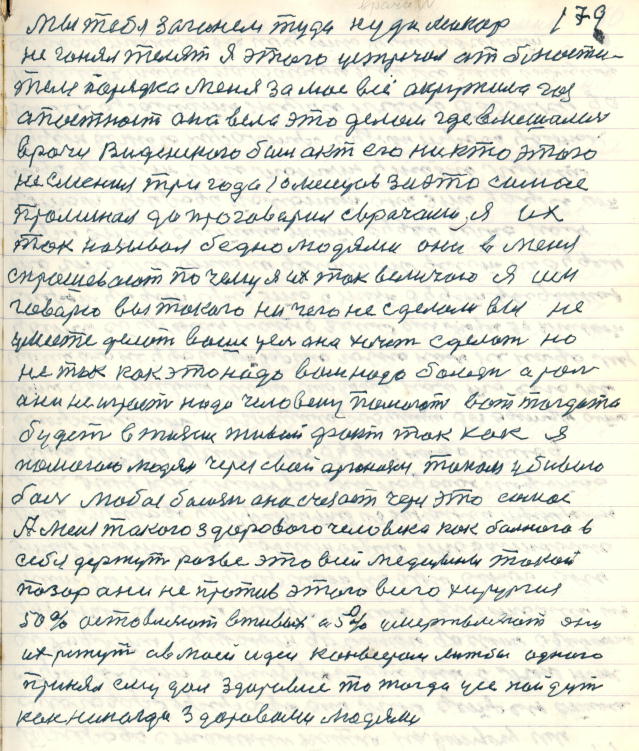 179
мы тебя загоним туда куда макар
не гонял телят я этого устрочал от блюсти-
теля порядка меня за мое всё окружила
она вела это делом где вмешались
врачи его никто этого
не сменил три года 10 месяцов за это самое
да проговарил с врачами, я их
так называл бедно людями они в меня
спрашевают по чему я их так величаю я им
говарю вы такого ни чего не сделали вы не
умеете делать ваше цель она хочет сделать но
не так как это надо вам надо балезн а рол
ани не играет надо человеку помогать вот тагда то
будет в жизни живой факт так как я
помогаю людям через свой таком убиваю
бал любое балезн она счезает через это самое
А меня такого здарового человека как балного в
себя держут разве это вией медецины такой
позор ани не против этого всего хирургия
50% оставляют в живых а 50% умертвляют они
их режут а в моей идеи конвеером лижбы одного
принял ему дал здаровие то тогда усе пойдут
как никагда здаровыми людями